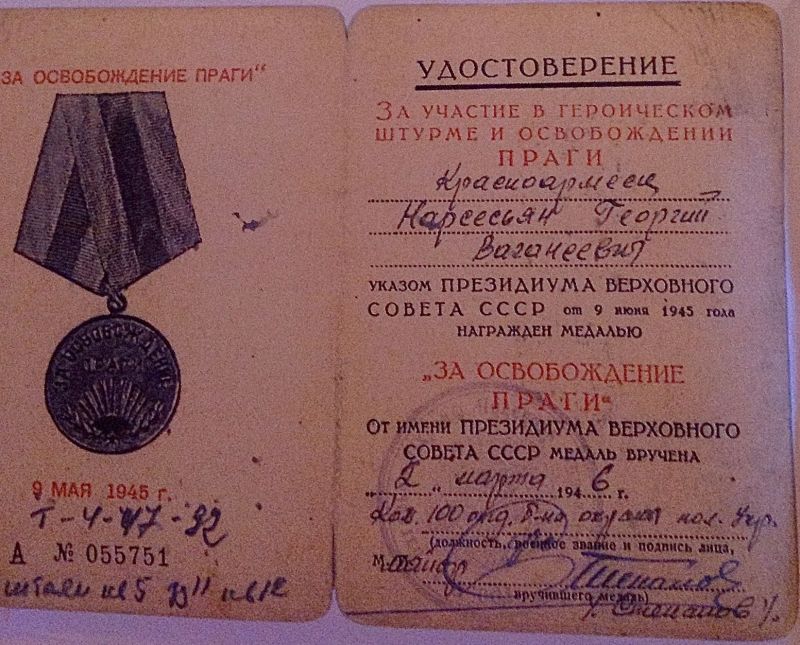 „ЗА ОСВОБОЖДЕНИЕ ПРАГИ“
ЗА ОСВОБОЖДЕНИЕ
ПРАГИ
9 МАЯ 1945 г.
Т-4-47-92
А № 055751
УДОСТОВЕРЕНИЕ
ЗА УЧАСТИЕ В ГЕРОИЧЕСКОМ
ШТУРМЕ И ОСВОБОЖДЕНИИ
ПРАГИ
Красноармеец
Нарсесьян Георгий
Ваганеевич
УКАЗОМ ПРЕЗИДИУМА ВЕРХОВНОГО
СОВЕТА СССР от 9 июня 1945 года
НАГРАЖДЕН МЕДАЛЬЮ
„ЗА ОСВОБОЖДЕНИЕ
ПРАГИ“
ОТ ИМЕНИ ПРЕЗИДИУМА ВЕРХОВНОГО
СОВЕТА СССР МЕДАЛЬ ВРУЧЕНА
„2„ марта 1946 г.
100 охраны
(должность, военное звание и подпись лица,
М. майор Степанов
вручившего медаль)
/Степанов/